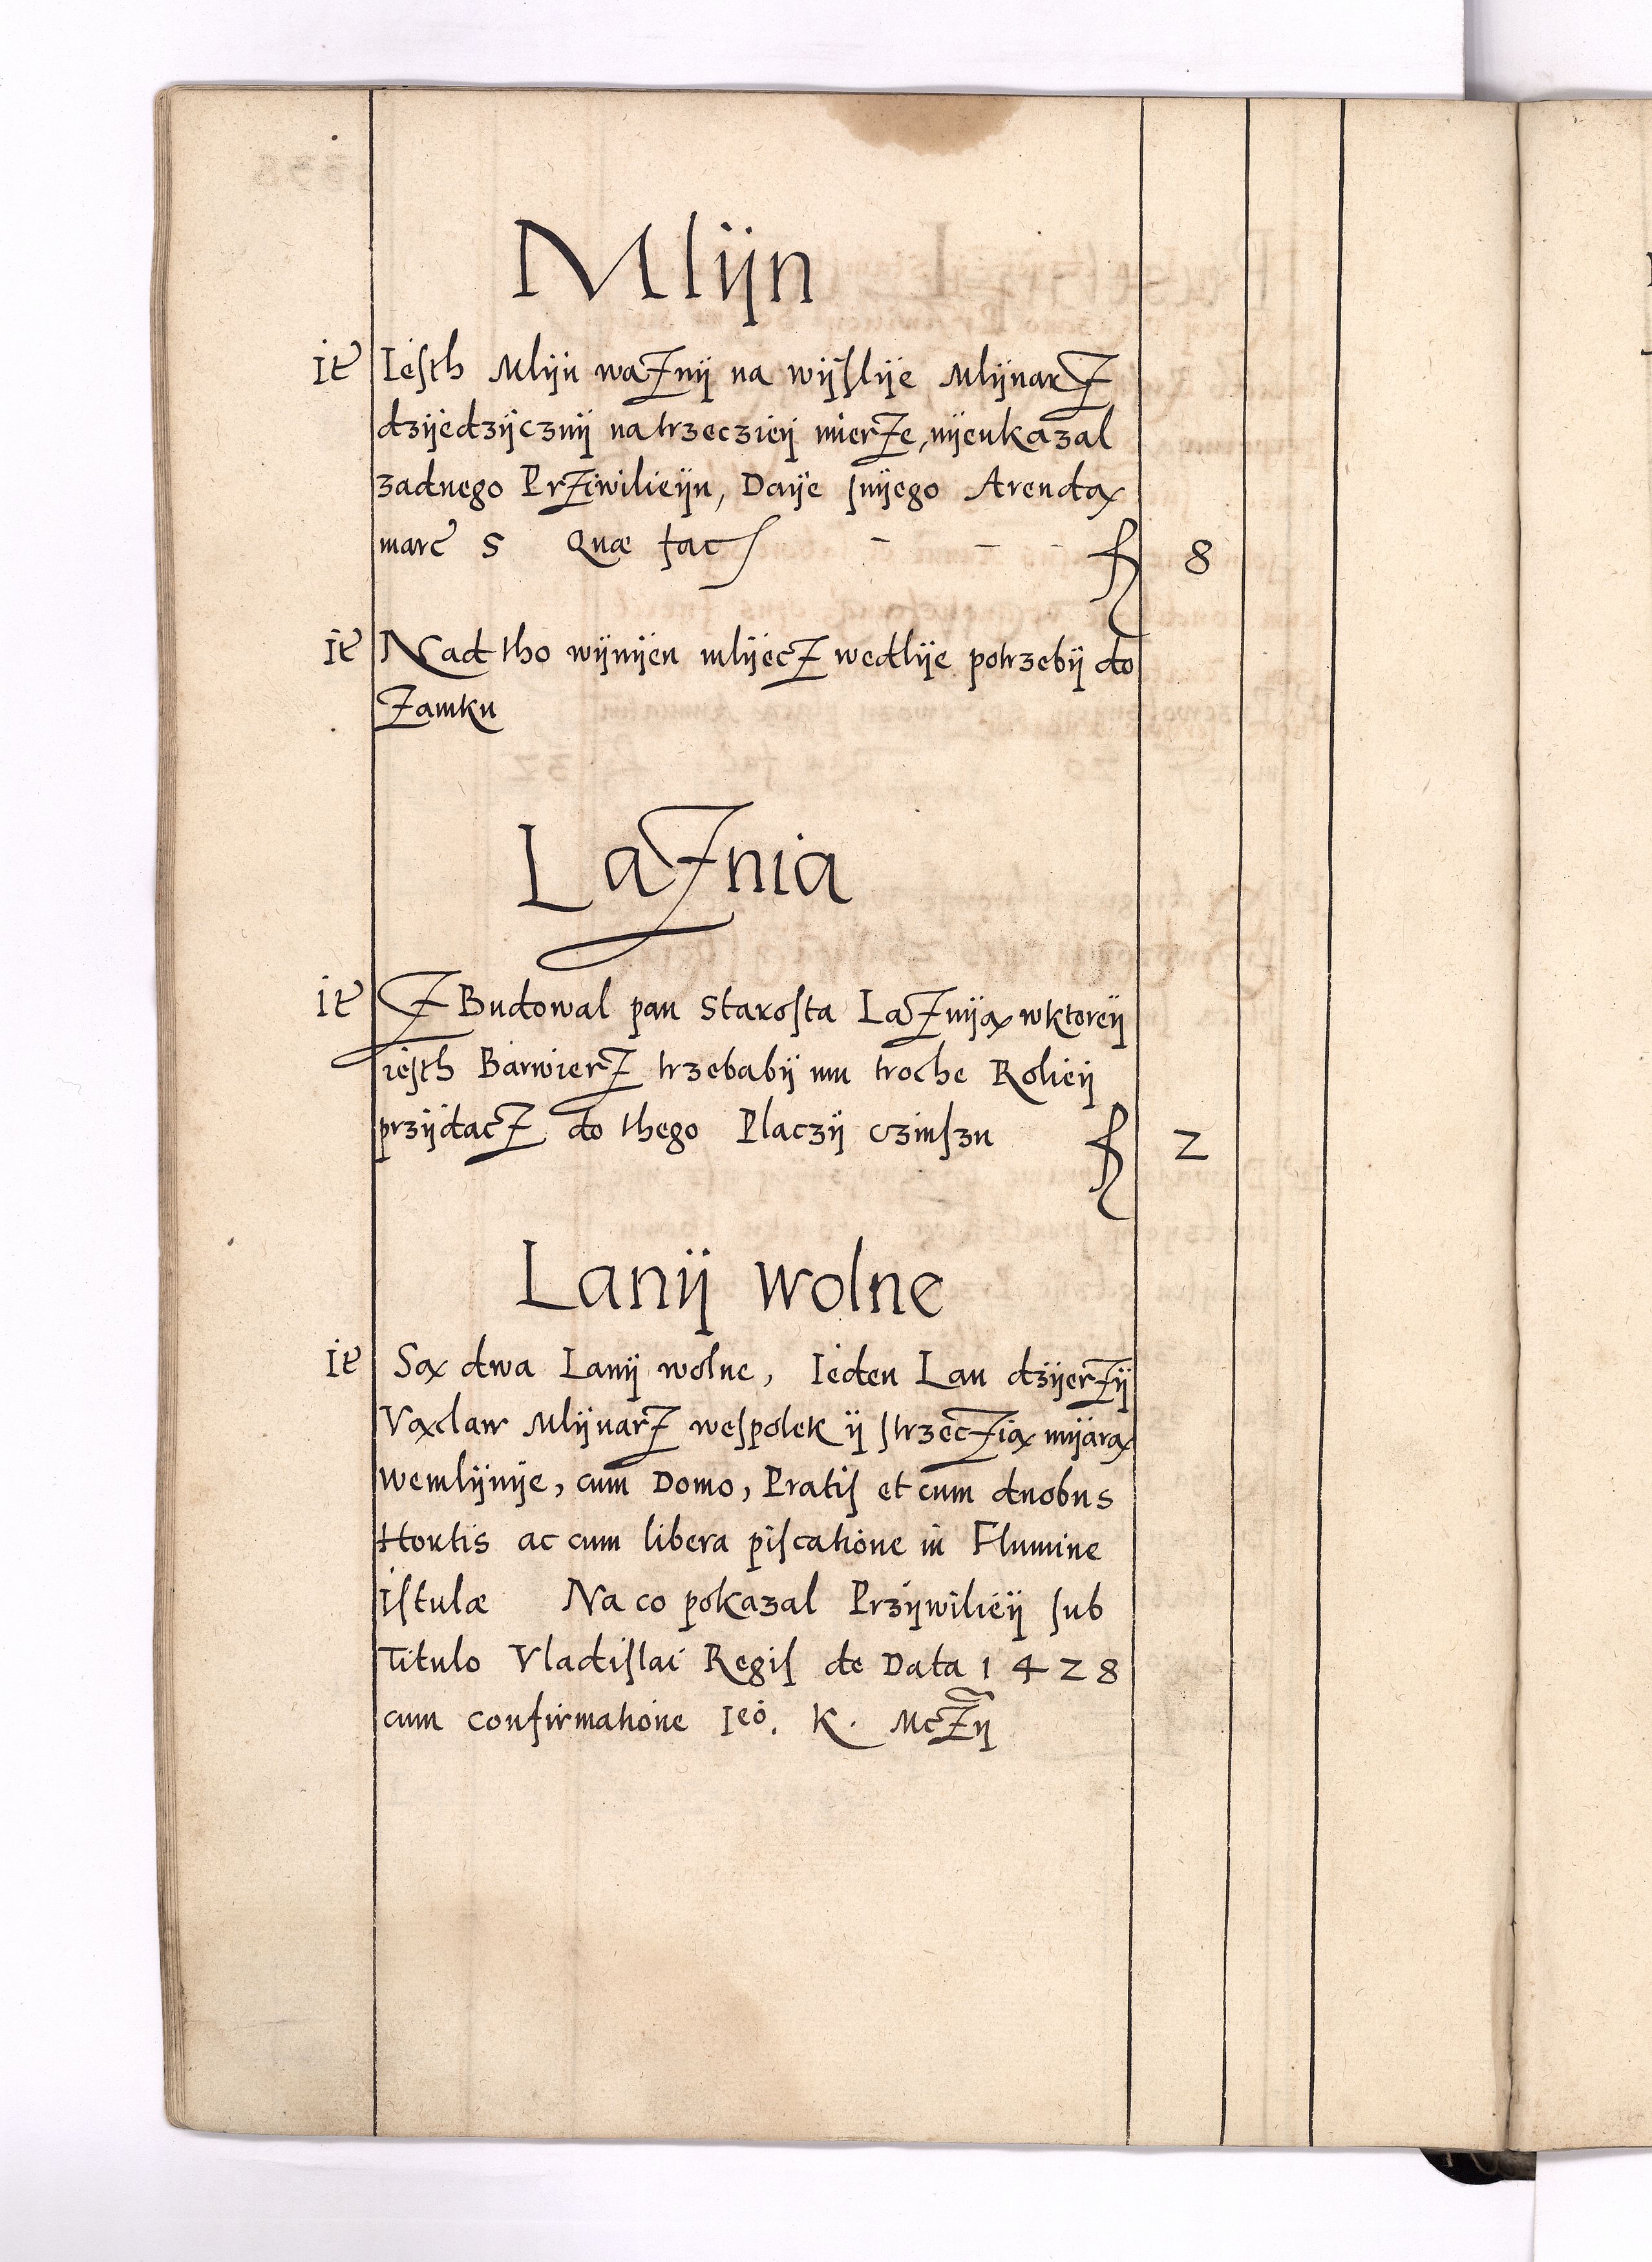 Mlijn
it Iesth Mlijn waZnij na wijslije MlijnarZ
dzijedzijcznij na trzecziej mierZe, nijeukazal
zadnego PrZiwilieiju, Daije snijego Arendą
marc 5 Quæ fac fl 8
it Nad tho wijnijen mlijecZ wedlije potrzebij do
Zamku
LaZnia
it Z Budowal pan Starosta LaZniją wktoreij
iesth BarwierZ trzebabij mu troche Rolieij
przijdacZ do thego Placzij czinszu fl 2
Lanij wolne
it Są dwa Lanij wolne, Ieden Lan dzijerZij
Vąclaw MlijnarZ wespolek ij strzecZią mijarą
wemlijnije, cum Domo, Pratis et cum duobus
Hortis ac cum libera piscatione in Flumine
Istulæ Na co pokazal Przijwilieij sub
Titulo Vladislai Regis de Data 1428
cum confirmatione Ieo. K. McZij